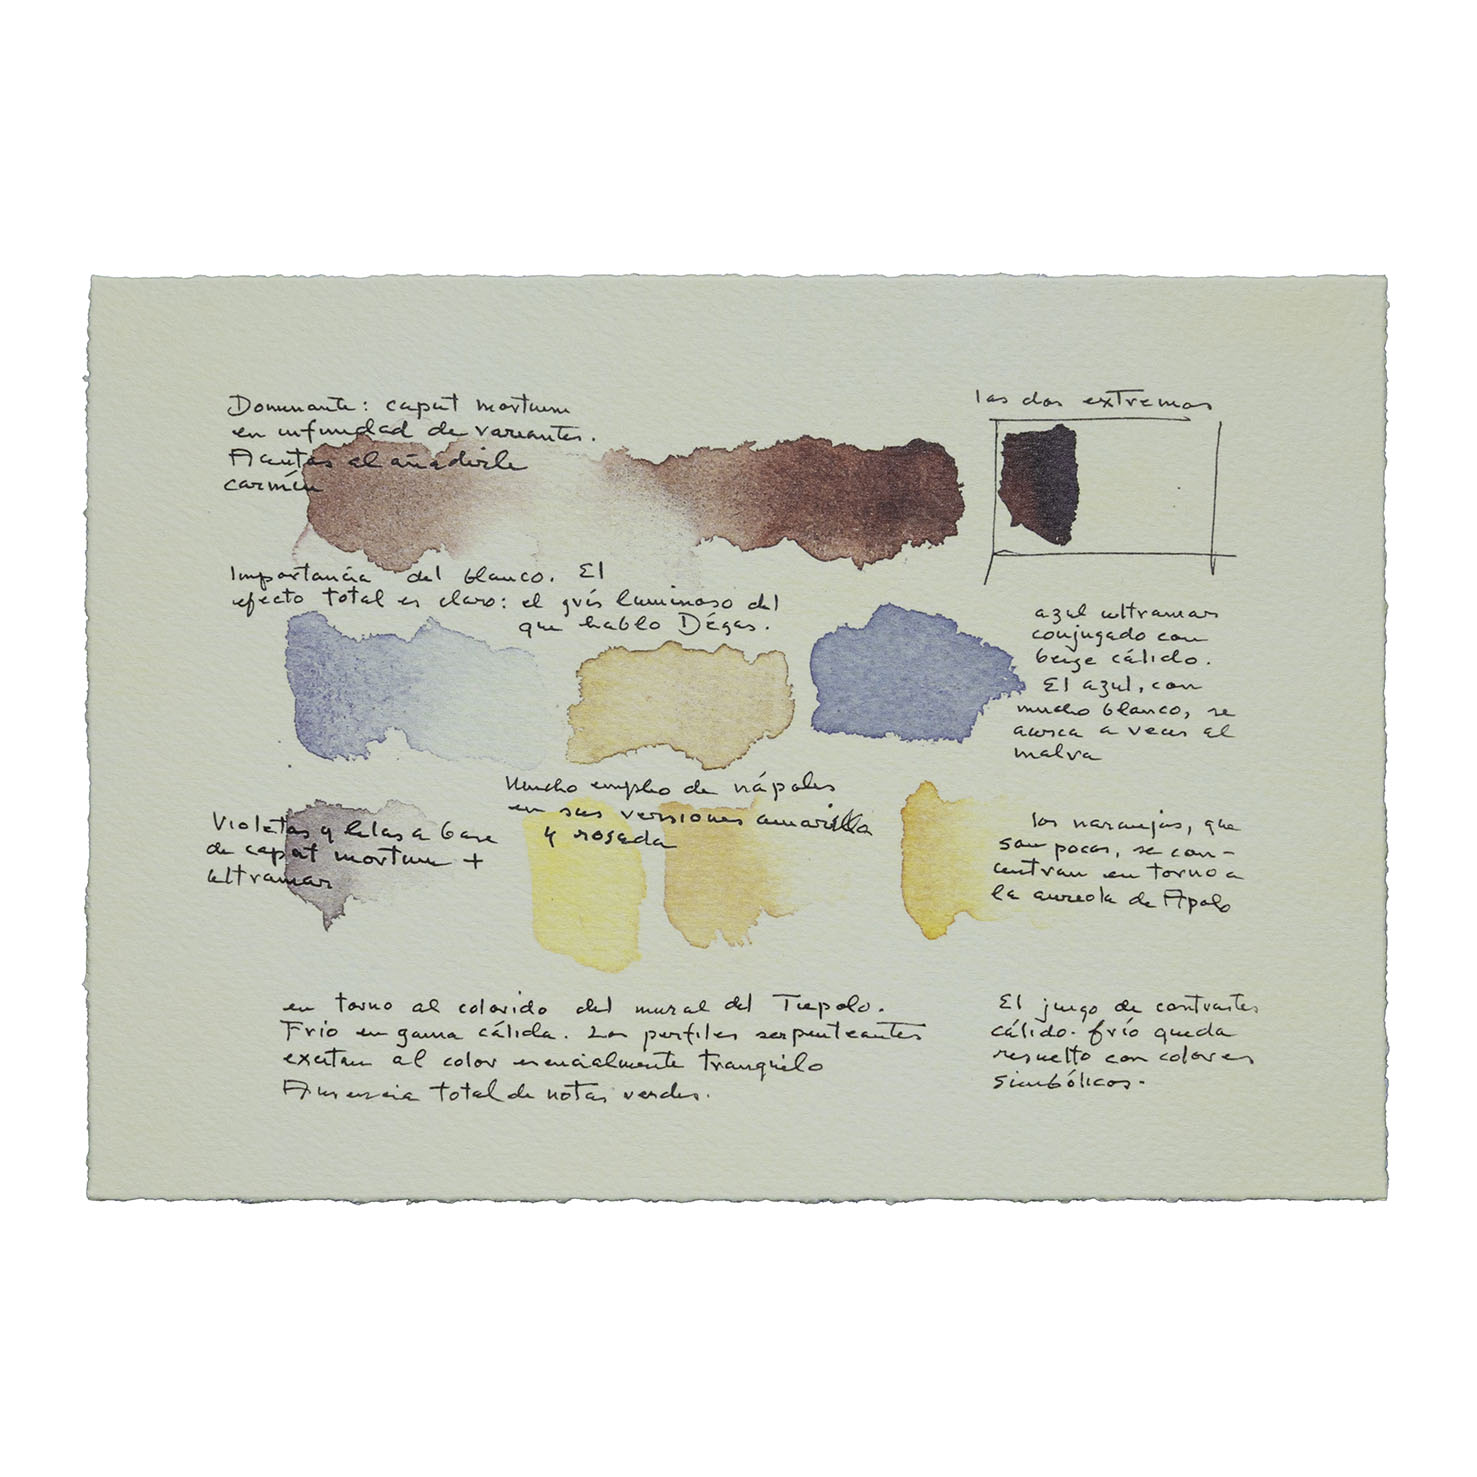 Dominante: caput mortum
en infinidad de variantes.
Acentos al añadirle
carmín
los dos extremos
Importancia del blanco. El
efecto total es claro: el grís luminoso del
que hablo Dégas.
azul ultramar
conjugado con
beige cálido.
El azul, con
mucho blanco, se
acerca a veces al
malva
Mucho empleo de nápoles
en sus versiones amarilla
y rosada
Violetas y lilas a base
de caput mortum +
ultramar
los naranjas, que
son pocos, se con-
centran en torno a
la aureola de Apolo
en torno al colorido del mural del Tiepolo.
Frio en gama cálida. Los perfiles serpenteantes
excitan al color esencialmente tranquilo
Ausencia total de notas verdes.
El juego de contrastes
cálido-frío queda
resuelto con colores
simbólicos.